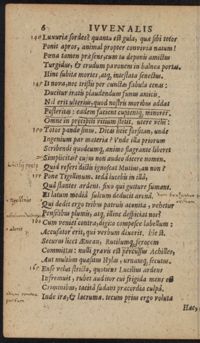 6 IVVENALIS
140 Luxuriæ sordes! quanta est gula, quæ sibi totos
Ponit apros, animal propter convivia natum!
Pœna tamen præsens, cum tu deponis amictus
Turgidus, & crudum pavonem in balnea portas.
Hinc subitæ mortes, atq; intestata senectus.
145 It nova, nec tristis per cunctas fabula cœnas:
Ducitur iratis plaudendum funus amicis.
Nil erit ulterius, quod nostris moribus addat
Posteritas: eadem facient cupientq; minores.
Omne in præcipiti vitium stetit. utere velis:
150 Totos pande sinus. Dicas heic forsitan, unde
Ingenium par materiæ? unde illa priorum
Scribendi quodcumq; animo flagrante liberet
Simplicitas? cujus non audeo dicere nomen.
Quid refert dictis ignoscat Mutius, an non?
155 Pone Tigellinum. teda lucebis in illa,
Qua stantes ardent. fixo qui gutture fumant,
Et latum media sulcum deducit arena.
Qui dedit ergo tribus patruis aconita, vehetur
Pensilibus plumis, atq; illinc despiciet nos?
160 Cum veniet contra, digito compesce labellum:
Accusator erit, qui verbum dixerit, Hic est.
Securus licet Æneam, Rutilumq; ferocem
Committas: nulli gravis est percussus Achilles,
Aut multum quæsitus Hylas, urnamq; secutus.
165 Ense velut stricto, quoties Lucilius ardens
Infremuit, rubet auditor cui frigida mens est
Criminibus, tacita sudant præcordia culpa.
Inde iræ, & lacrumæ. tecum prius ergo voluta
Hæc,